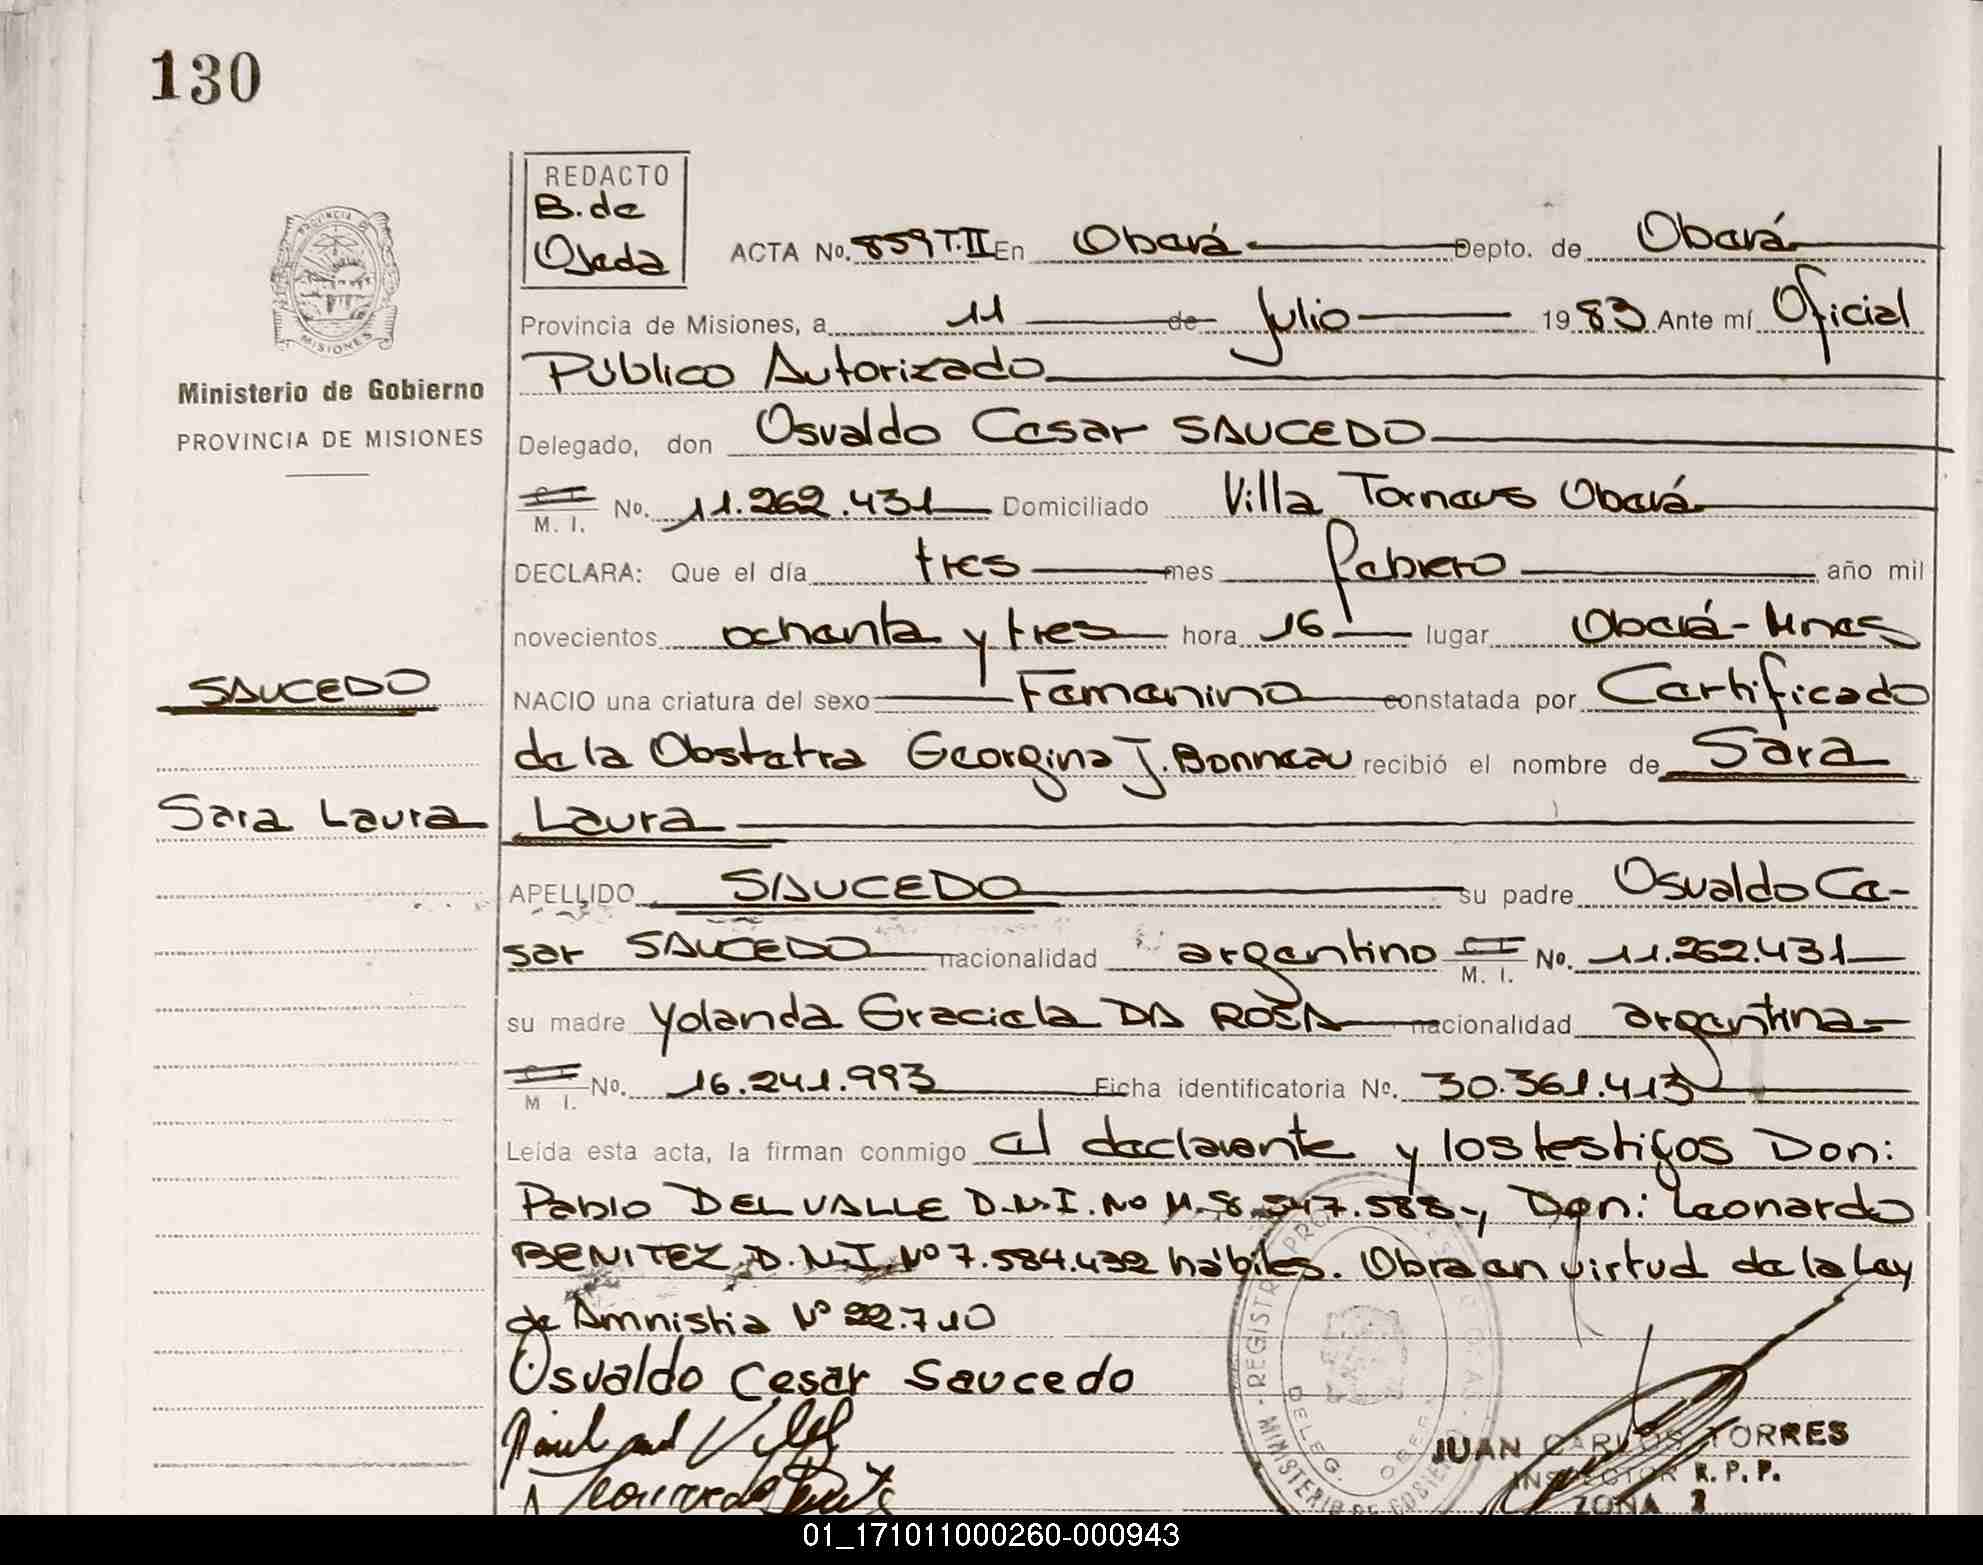 130
REDACTO
B. de
Ojeda
ACTA No. 859 T.II En Oberá Depto. de Oberá
PROVINCIA DE
MISIONES
Provincia de Misiones, a 11 de Julio 1983 Ante mí Oficial
Público Autorizado
Ministerio de Gobierno
PROVINCIA DE MISIONES
Delegado, don Osvaldo Cesar SAUCEDO
C I
M. I. No. 11.262.431 Domiciliado Villa Torneus Oberá
DECLARA: Que el día tres mes febrero año mil
novecientos ochenta y tres hora 16 lugar Oberá-Mnes
SAUCEDO
NACIO una criatura del sexo Femenino constatada por Certificado
de la Obstetra Georgina J. Bonneau recibió el nombre de Sara
Sara Laura
Laura
APELLIDO SAUCEDO su padre Osvaldo Ce-
sar SAUCEDO nacionalidad argentino C I M. I. No. 11.262.431
su madre Yolanda Graciela DA ROSA nacionalidad argentina
C I
M I. No. 16.241.993 Ficha identificatoria No. 30.361.413
Leída esta acta, la firman conmigo el declarante y los testigos Don:
Pablo DEL VALLE D.N.I. No M. 8.547.588 y Don: Leonardo
BENITEZ D.N.I. Nº 7.584.432 hábiles. Obra en virtud de la Ley
de Amnistia Nº 22.710
Osvaldo Cesar Saucedo
REGISTR
MINISTERIO DE GOBIE
DELEG. OBERA
JUAN CARLOS TORRES
INSPECTOR R. P. P.
ZONA
01_171011000260-000943